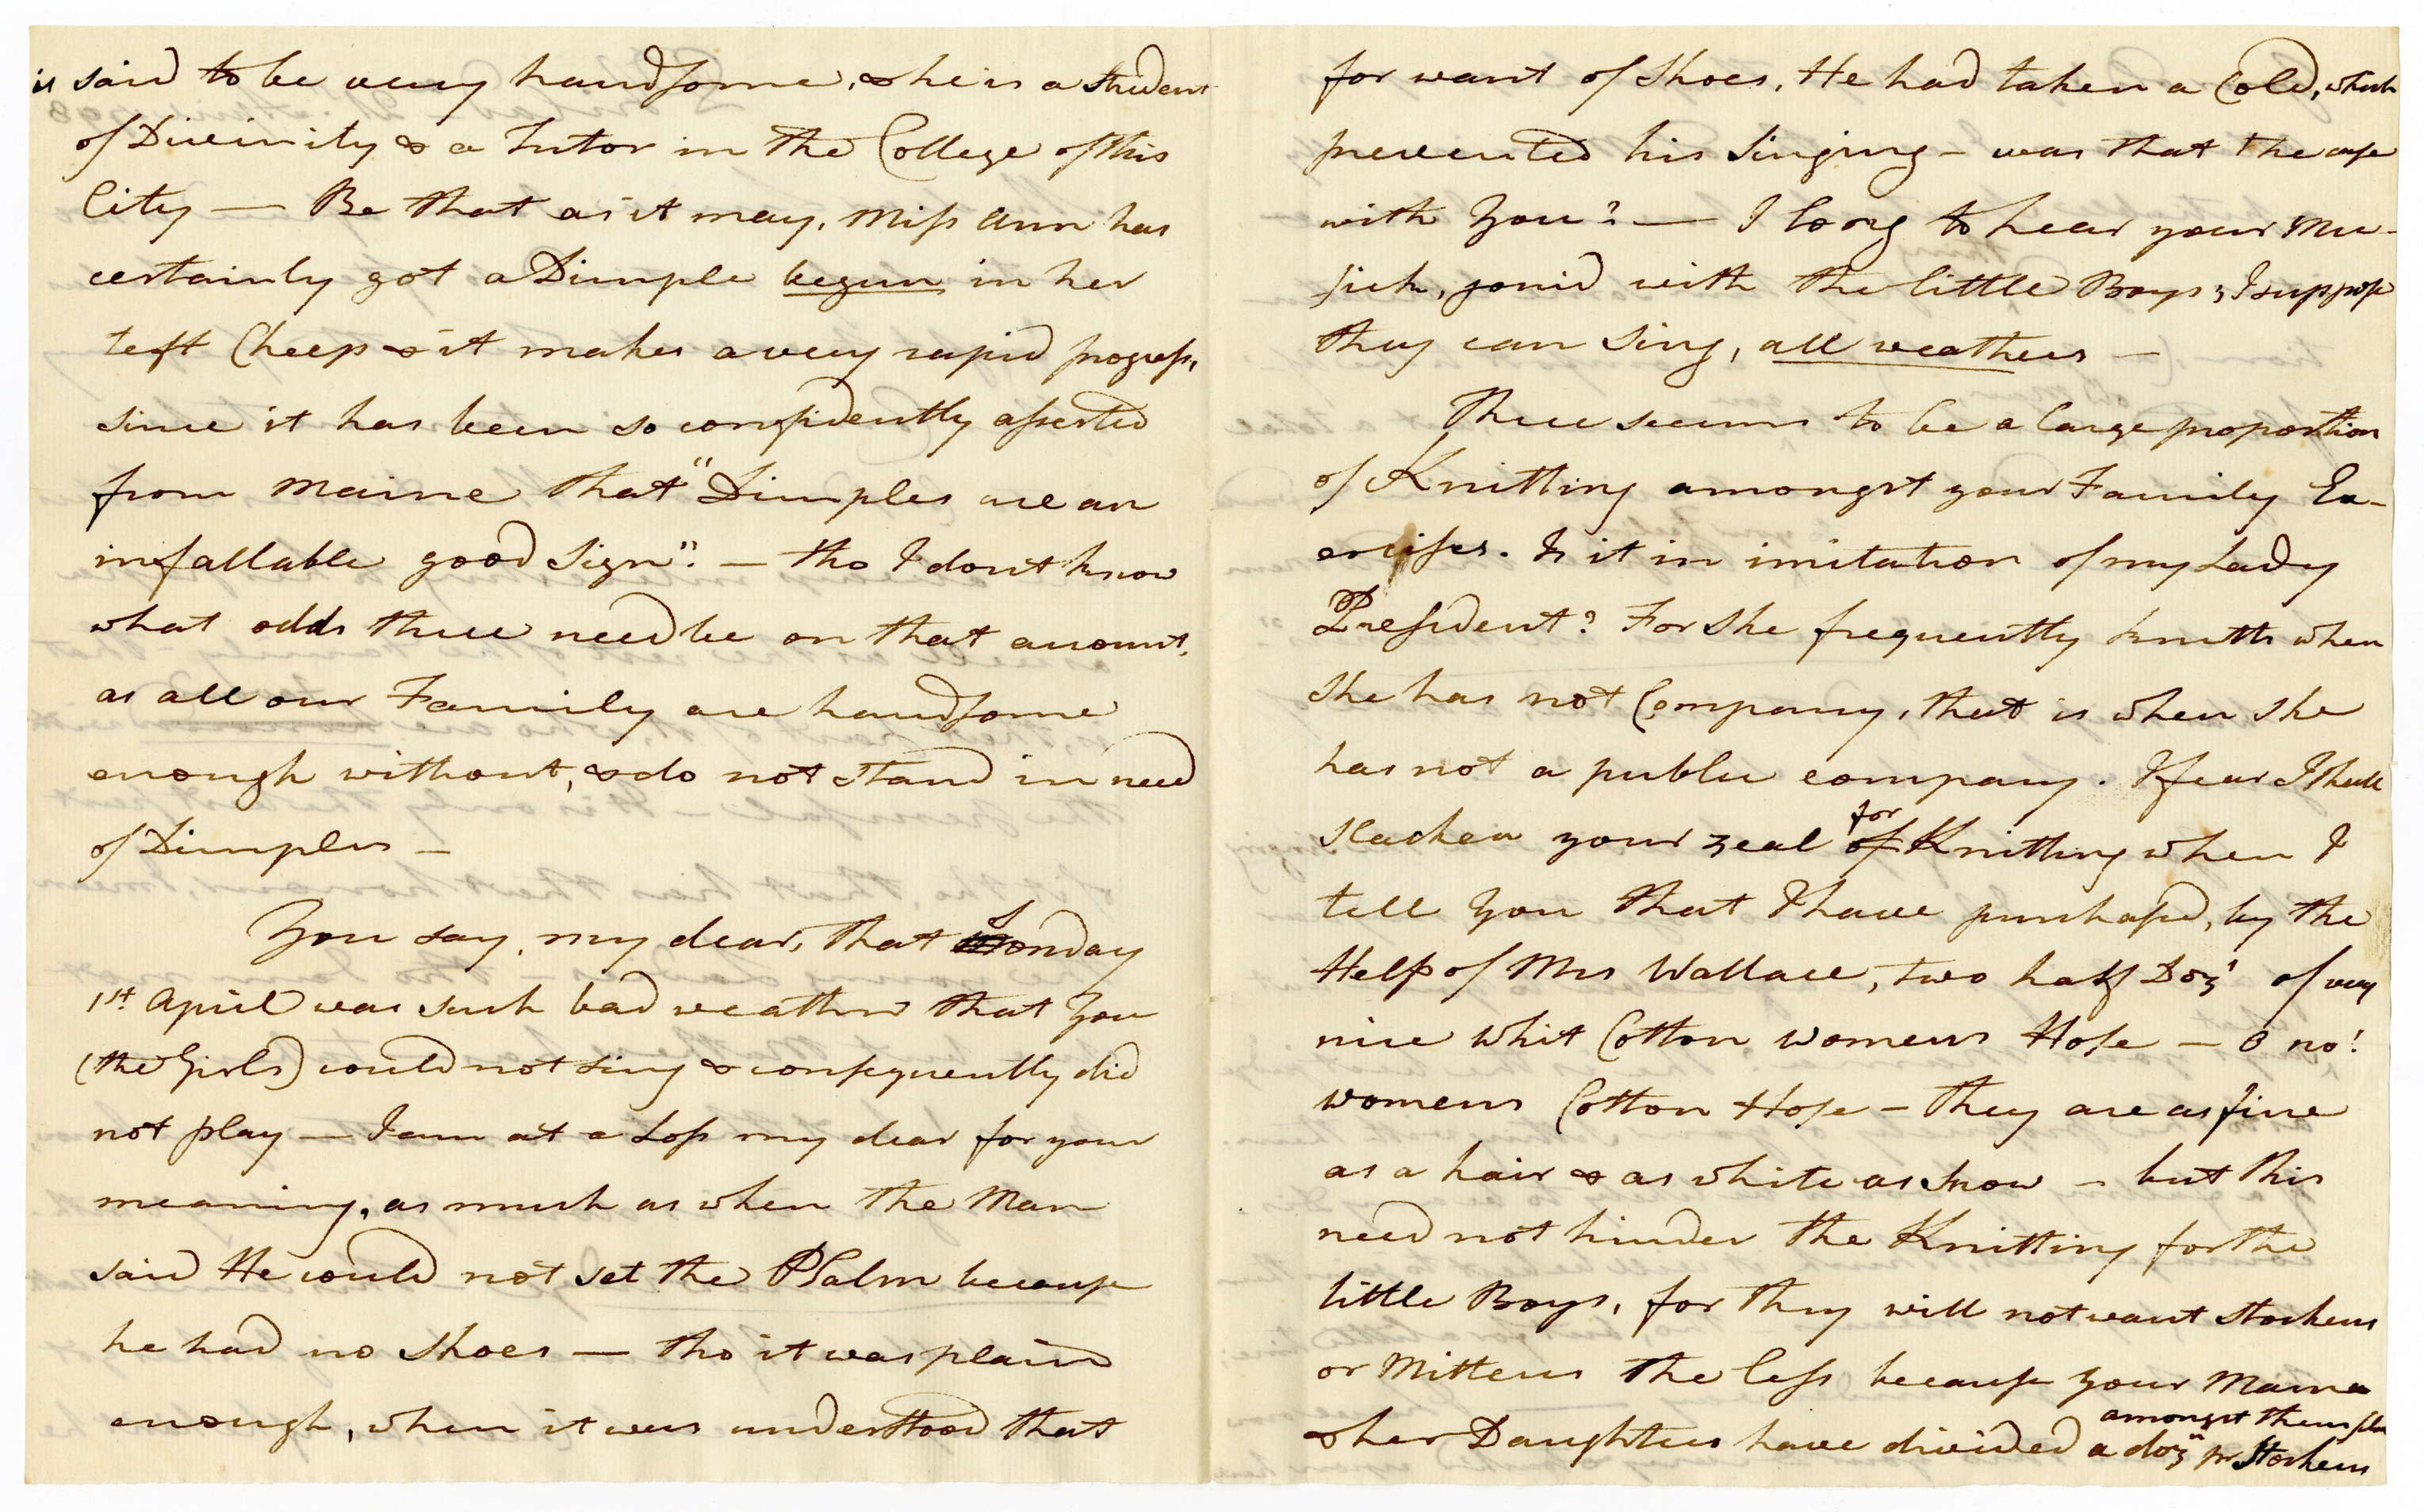 is said to be very handsome, & he is a Student
of Divinity & a Tutor in the College of this
City — Be that as it may, Miss Ann has
certainly got a Dimple begun in her
left Cheep & it makes a very rapid progress,
since it has been so confidently asserted
from Maine that "Dimples are an
infallable good Sign". — tho I dont know
what odds there need be on that account,
as all our Family are handsome
enough without, & do not stand in need
of Dimples —
You say, my dear, that Sonday
1st April was such bad weather that You
(the Girls) could not sing & consequently did
not play — I am at a Loss my dear for your
meaning, as much as when the Man
said He could not set the PSalm because
he had no Shoes — tho it was plain
enough, when it was understood that
for want of Shoes, He had taken a Cold, which
prevented his Singing — was that the case
with You? — I long to hear your Mu-
sick, joind with the little Boys; I suppose
they can Sing, all weathers —
There seems to be a large proportion
of Knitting amongst your Family Ex-
ercises. Is it in imitation of my Lady
President? For She frequently knitts when
She has not Company, that is when she
has not a public company. I fear I shall
slacken your zeal for
of Knitting when I
tell You that I have purchased, by the
Help of Mrs Wallace, two half Doz' of very
nice Whit Cotton womens Hose — O no!
womens Cotton Hose — they are as fine
as a hair & as white as Snow — but this
need not hinder the Knitting for the
little Boys, for they will not want stockens
or Mittens the less because your Mama
& her Daughters have divided amongst themselves
a doz" pr Stockens